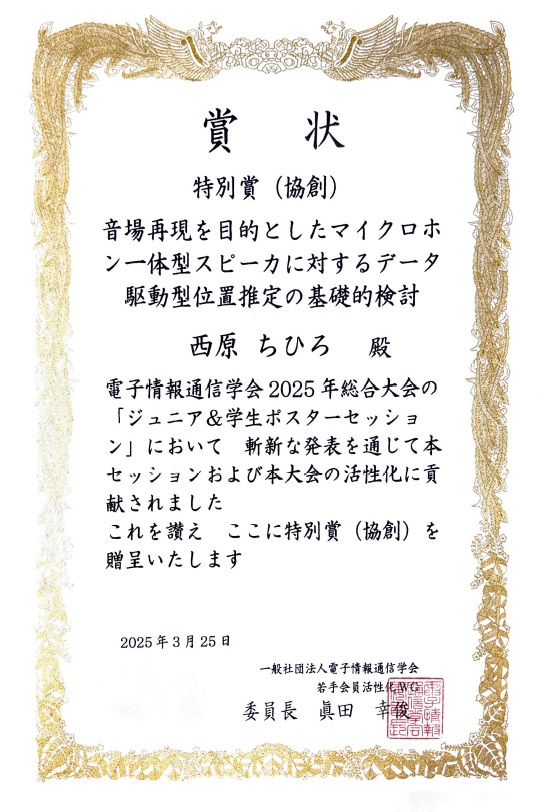 賞状
特別賞（協創）
音場再現を目的としたマイクロホ
ン一体型スピーカに対するデータ
駆動型位置推定の基礎的検討
西原 ちひろ 殿
電子情報通信学会2025年総合大会の
「ジュニア&学生ポスターセッショ
ン」において　斬新な発表を通じて本
セッションおよび本大会の活性化に貢
献されました
これを讃え　ここに特別賞（協創）を
贈呈いたします
2025年3月25日
一般社団法人電子情報通信学会
若手会員活性化WG
委員長 眞田 幸俊